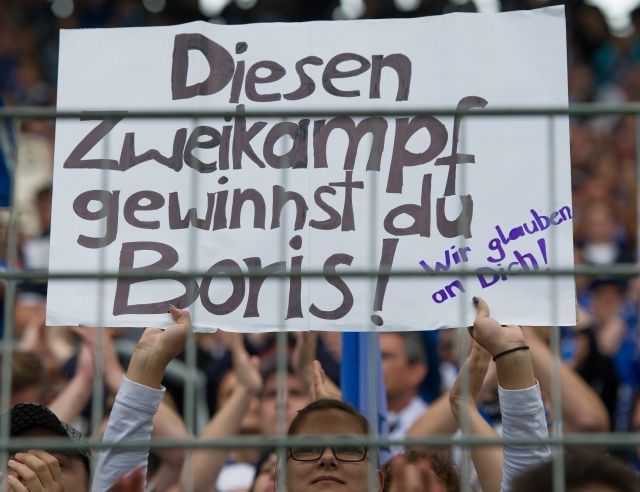 Diesen
Zweikampf
gewinnst du
Boris!
Wir glauben
an Dich!